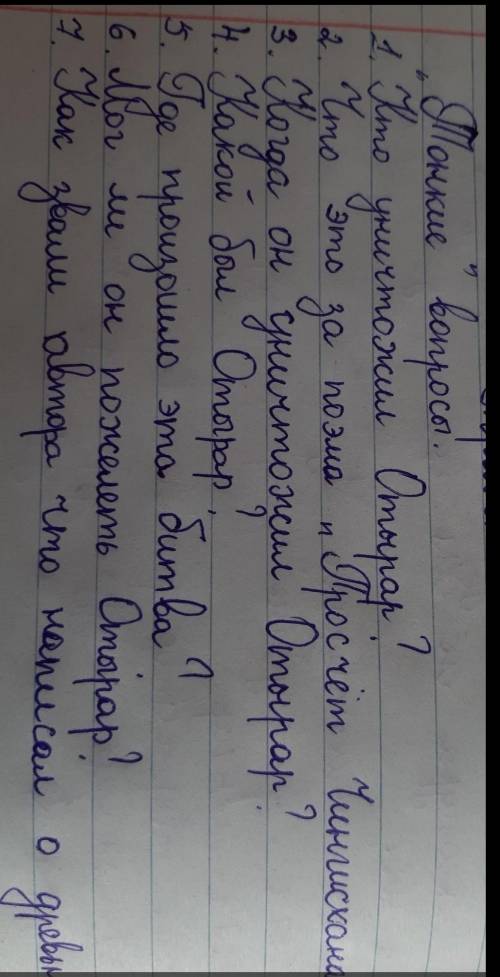 „Тонкие" вопросы.
1. Кто уничтожил Отырар?
2. Что это за поэма „Просчёт Чингисхана
3. Когда он уничтожил Отырар?
4. Какой был Отырар?
5. Где произошла эта битва?
6. Мог ли он пожалеть Отырар?
7. Как звали автора что написал о